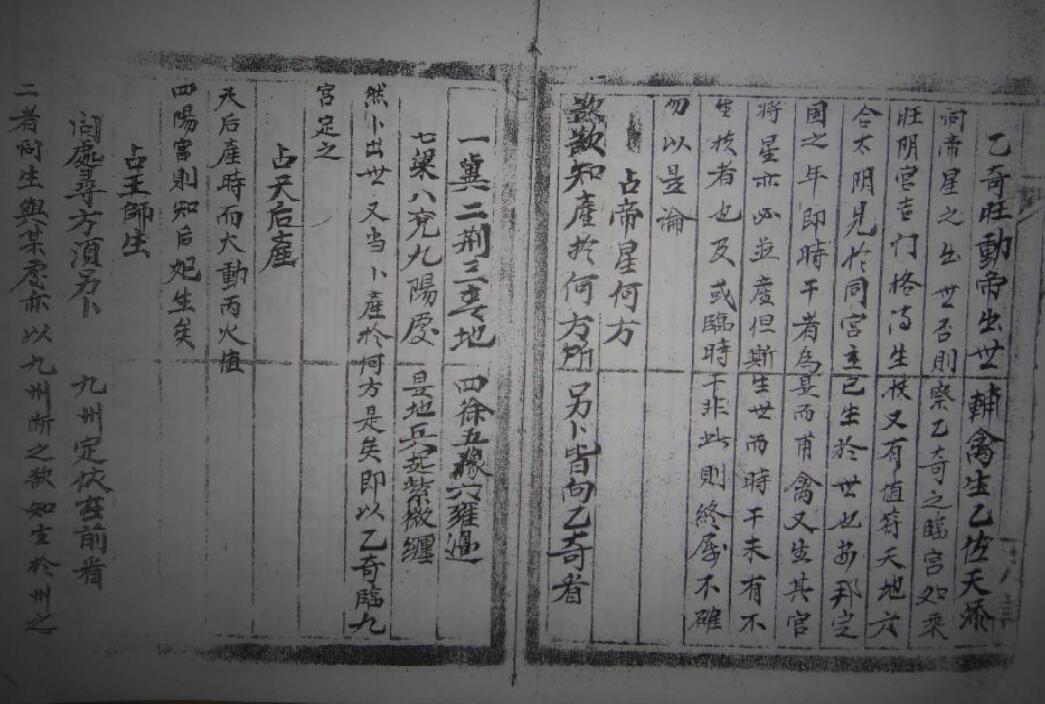 乙奇旺動帝出世　輔禽生乙佐天
問帝星之出世否則察乙奇之臨宮如乘
旺阴宮吉门格局生扶又有值符天地六
合太阴見於同宮主已生於世也安邦定
國之年即時干者為是而甫禽又生其宮
将星亦必並產但斯生世而時干未有不
生扶者也及或臨時干非此則終屬不確
勿以是論
占帝星何方
欲知產於何方所　另卜皆向乙奇看
一冀二荆三青地　四徐五豫六雍過
七梁八兗九陽處　是地兵起紫微纏
然卜出世又当卜產於何方是矣即以乙奇臨九
宮定之
占天后產
天后產時而大動丙火值
四陽宮則知后妃生矣
占王師生
问處尋方須另卜　九州定依在前看
二者问生與某處亦以九州断之欲知生於州之